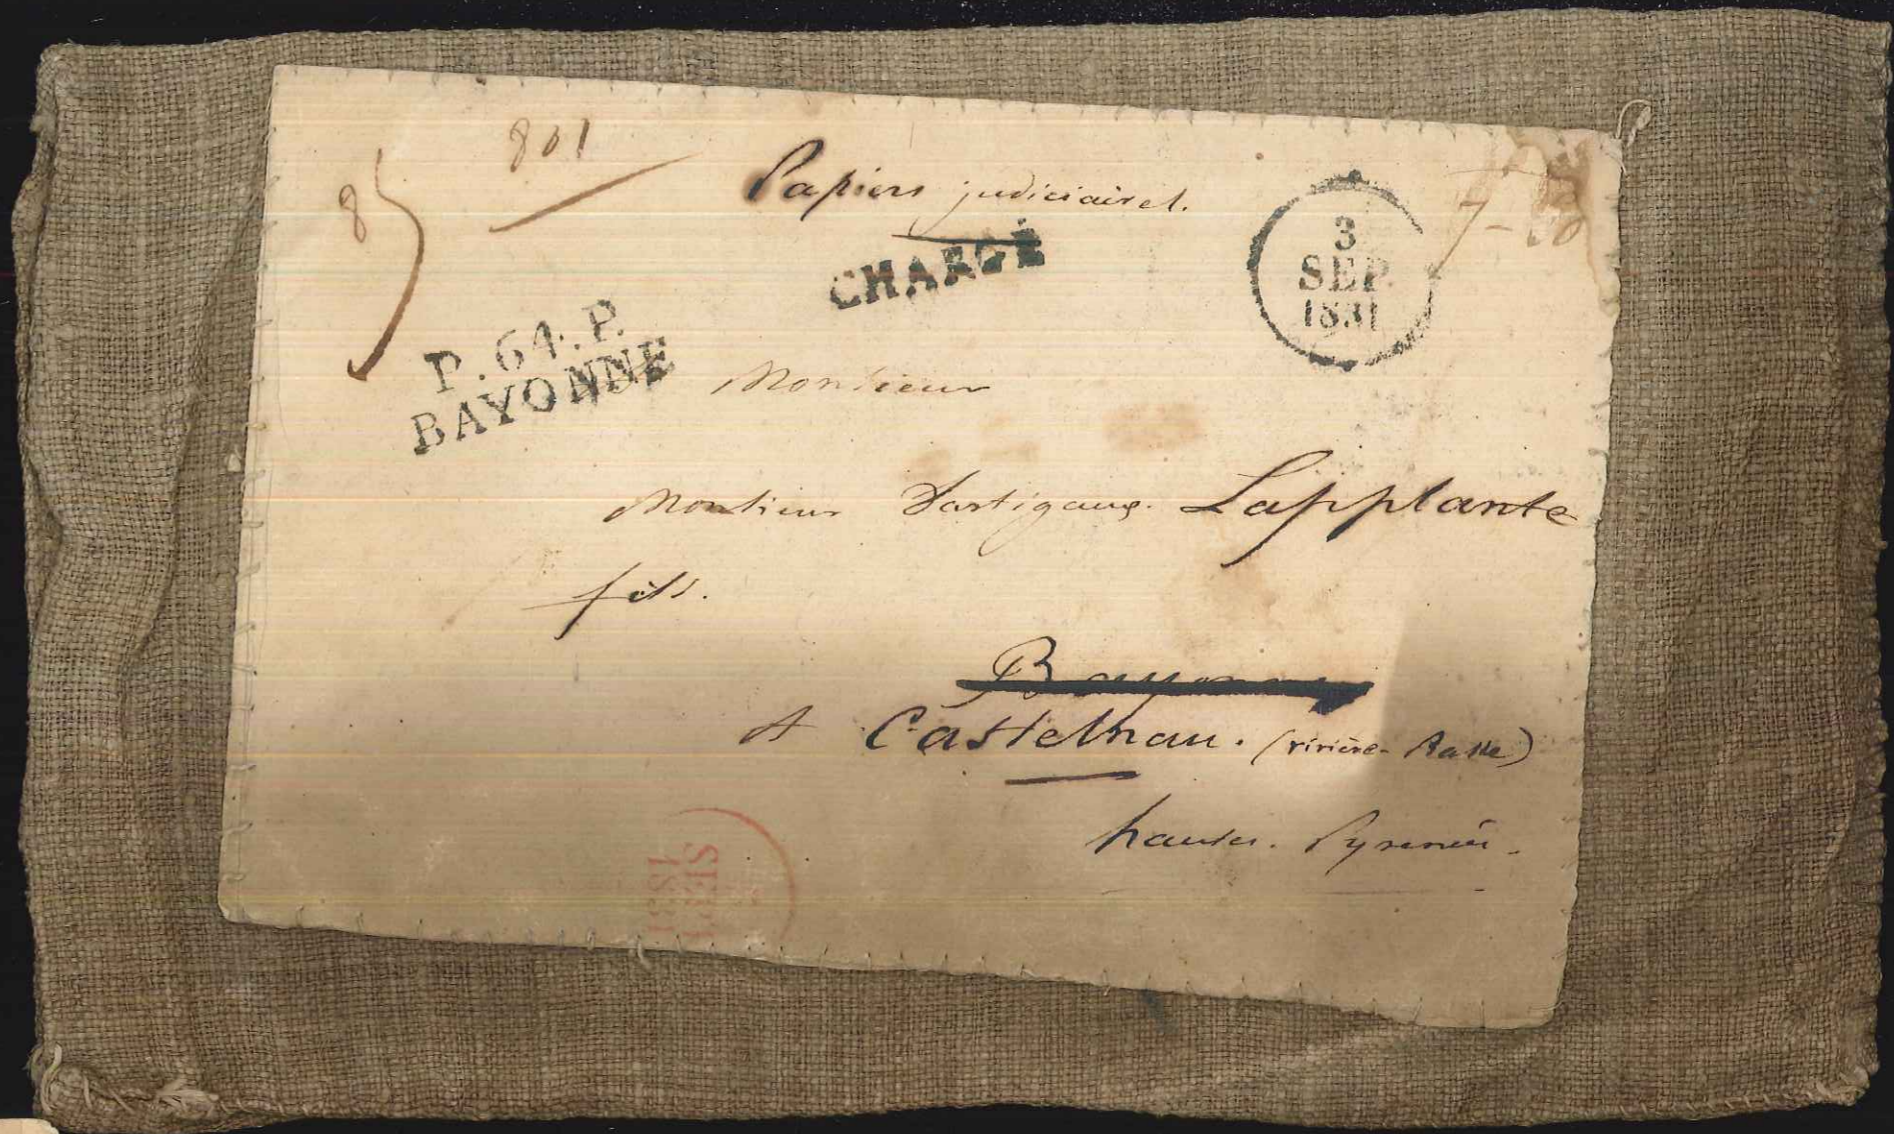 801
8
Papiers judiciaires.
CHARGÉ
3
SEP.
1831
P. 64. P.
BAYONNE
Monsieur
Monsieur Dartigaux. Lapplante
fils.
Bayonne
A Castelnau. (rivière-Basse)
hautes. Pyrénées.
SEPT
1831